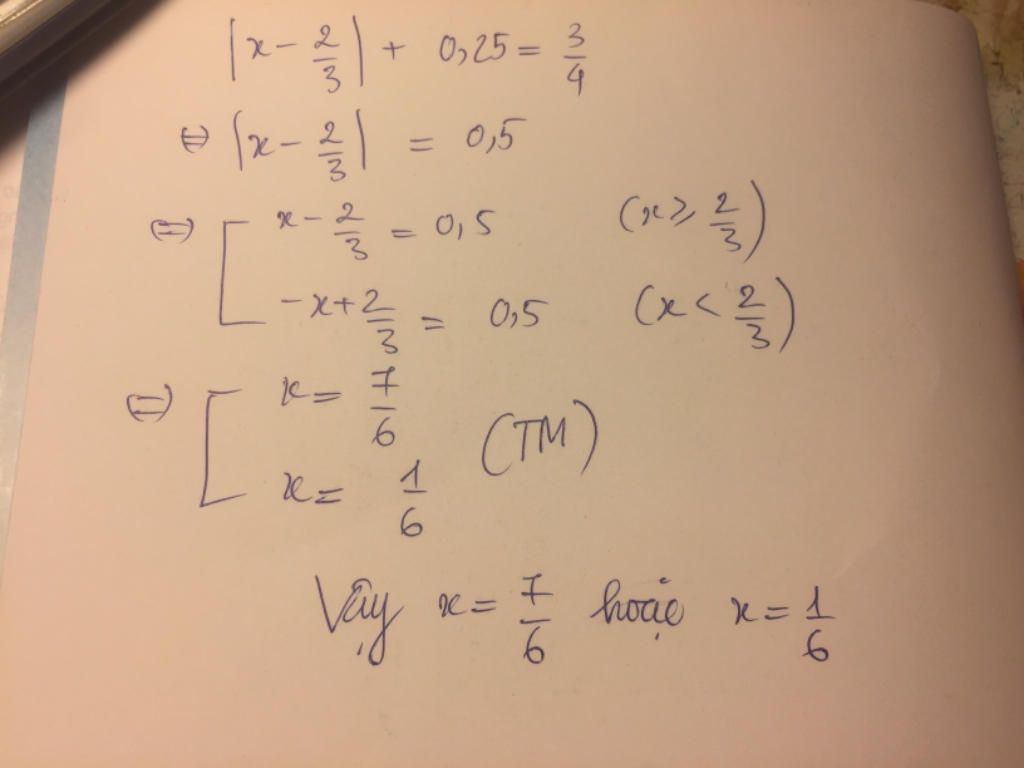 |x - 2/3| + 0,25 = 3/4
⇔ |x - 2/3| = 0,5
⇔ [ x - 2/3 = 0,5 (x ≥ 2/3)
-x + 2/3 = 0,5 (x < 2/3)
⇔ [ x = 7/6
x = 1/6 (TM)
Vậy x = 7/6 hoặc x = 1/6